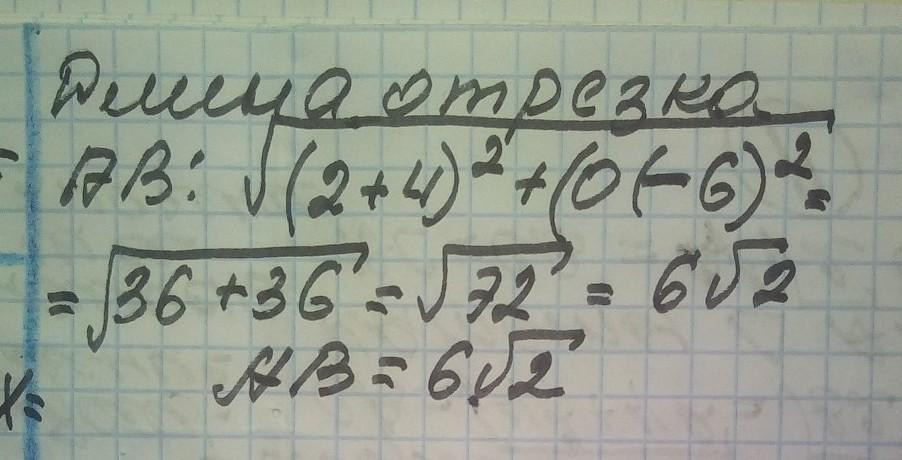 Длина отрезка
АВ: √(2+4)²+(0(-6)² =
= √36+36 = √72 = 6√2
АВ = 6√2
x=